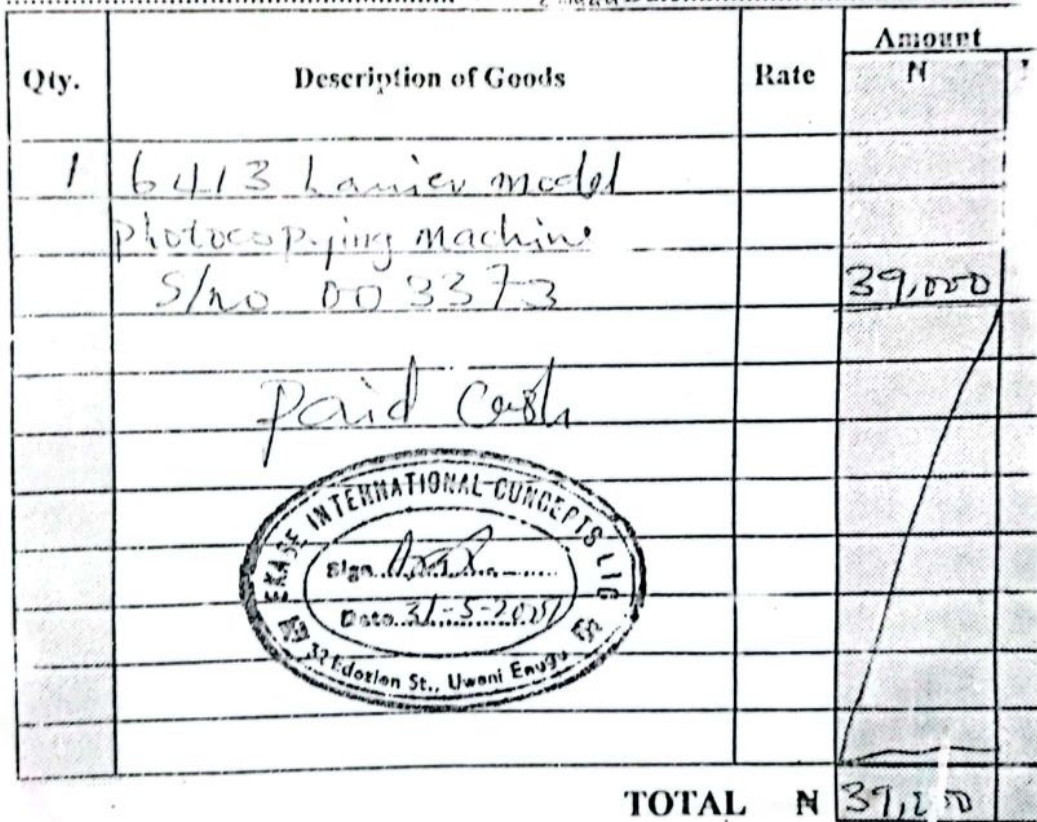 Amount
Qty. Description of Goods Rate ₦
1 6413 Lanier model
photocopying machine
S/no 003373 39,000
Paid Cash
EKASE INTERNATIONAL CONCEPTS LTD
Sign
Date 31-5-2001
32 Edozien St., Uwani Enugu
TOTAL ₦ 39,000